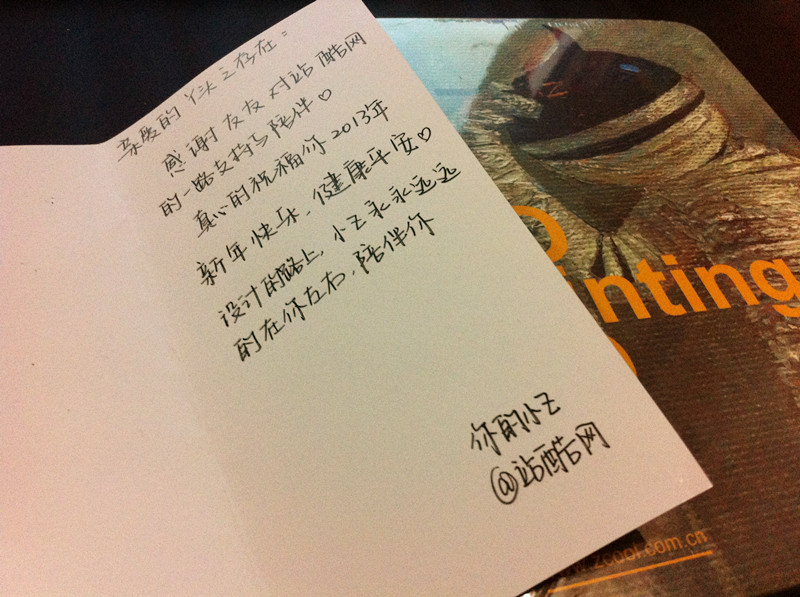 亲爱的丫头之存在：
感谢友友对站酷网
的一路支持与陪伴♡
真心的祝福你2013年
新年快乐，健康平安♡
设计的路上，小Z永永远远
的在你左右，陪伴你
你的小Z
@站酷网
inting
www.zcool.com.cn